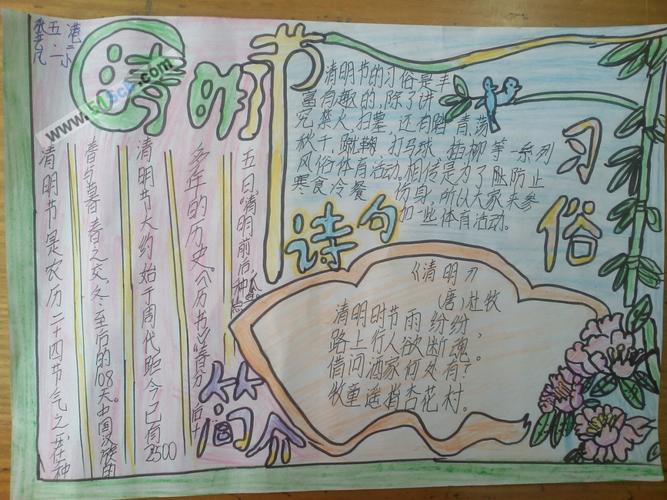 港二小
五.二
清明节
清明节是农历二十四节气之一,在种
春与暮春之交,冬至后的108天.中国汉族的
清明节大约始于周代距今已有2500
多年的历史《历书》:"春分后十
五日"清明前后,种
简介
习俗
清明节的习俗是丰
富有趣的,除了讲
究禁火、扫墓,还有踏青、荡
秋千、蹴鞠、打马球、插柳等一系列
风俗体育活动。相传是为了防止
寒食冷餐伤身,所以大家来参
加一些体育活动。
诗句
《清明》
(唐)杜牧
清明时节雨纷纷,
路上行人欲断魂。
借问酒家何处有?
牧童遥指杏花村.